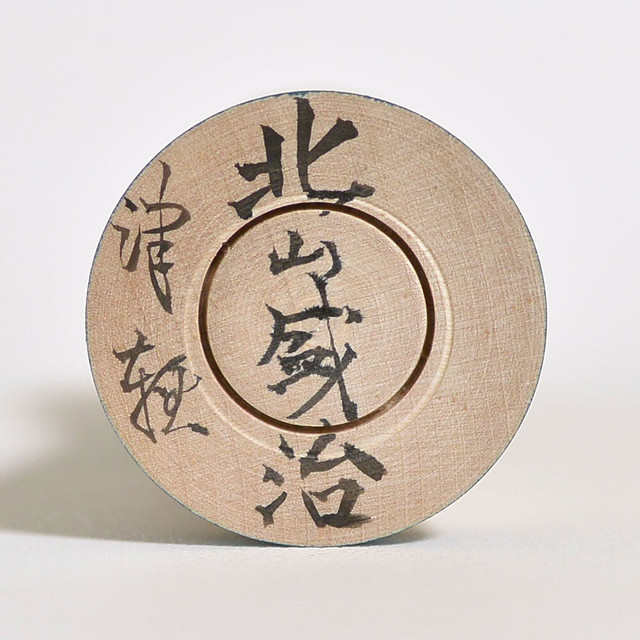 北山盛治
津軽